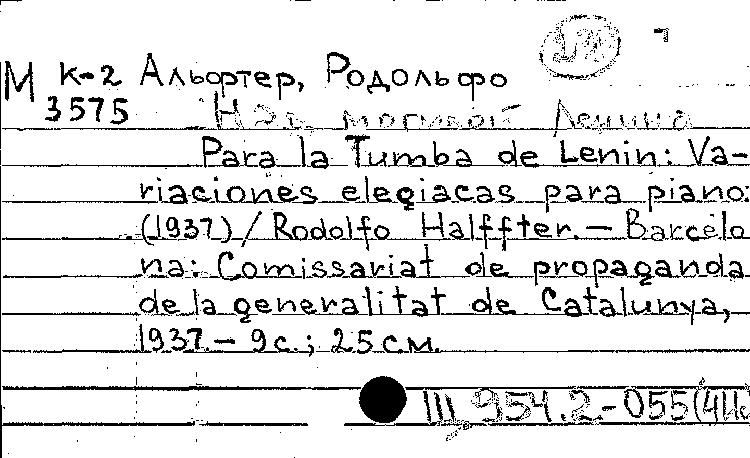 М К-2 Альфтер, Родольфо
3575 Над могилой Ленина
Para la Tumba de Lenin: Va-
riaciones elegiacas para piano:
(1937) / Rodolfo Halffter. – Barcelo
na: Comissariat de propaganda
de la generalitat de Catalunya,
1937. – 9 с.; 25 см.
Щ 954.2-055(4Ис